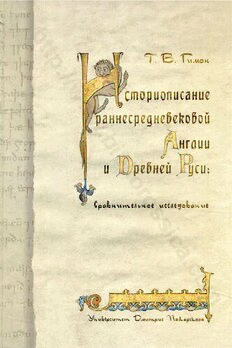 Т. В. Гимон
Историописание
раннесредневековой
Англии
и Древней Руси:
Сравнительное исследование
Университет Дмитрия Пожарского